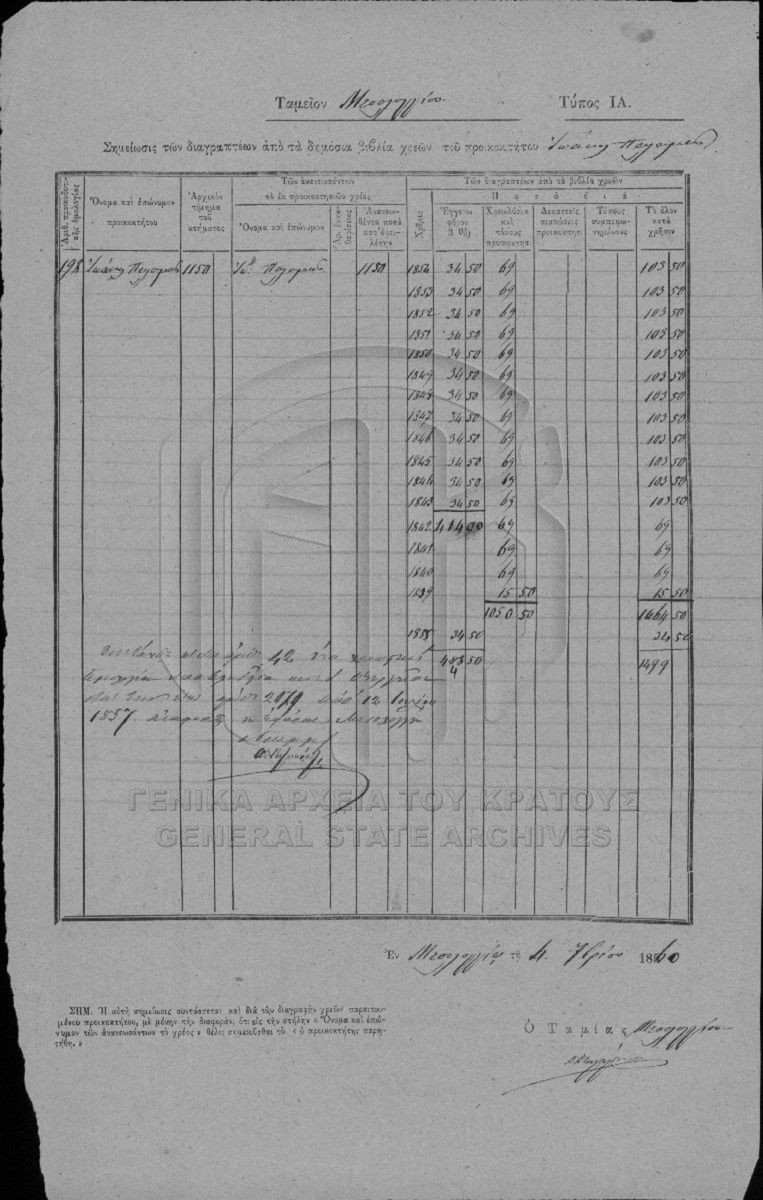 Ταμεῖον Μεσολογγίου Τύπος ΙΑ.
Σημείωσις τῶν διαγραπτέων ἀπὸ τὰ δημόσια βιβλία χρεῶν τοῦ προικοκτήτου Ἰωάννη
Ἀριθ. προικοδοτικῆς ὁμολογίας
Ὄνομα καὶ ἐπώνυμον προικοκτήτου
Ἀρχικὸν τίμημα τοῦ κτήματος
Τῶν ἀνανεωσάντων τὸ ἐκ προικοκτησιῶν χρέος
Ὄνομα καὶ ἐπώνυμον
Ἀνανεωθέντα ποσὰ κατ' ὀφειλέτην
Τῶν διαγραπτέων ἀπὸ τὰ βιβλία χρεῶν
Χρῆσις
Ποσά
Ἔγγειον φόρον 3 0/0
Χρεωλύσια καὶ τόκους προικοκτησ.
Δεκαετεῖς προικοκτησ.
Τόκους συμπεφωνημένους
Τὸ ὅλον κατὰ χρῆσιν
198 Ἰωάννη 1150 Ἰω. 1150 1854 34 50 69 103 50
1853 34 50 69 103 50
1852 34 50 69 103 50
1851 34 50 69 103 50
1850 34 50 69 103 50
1849 34 50 69 103 50
1848 34 50 69 103 50
1847 34 50 69 103 50
1846 34 50 69 103 50
1845 34 50 69 103 50
1844 34 50 69 103 50
1843 34 50 69 103 50
1842 414 00 69 69
1841 69 69
1840 69 69
1839 15 50 15 50
1050 50 1464 50
1855 34 50 34 50
448 50 1499
42
2079 12
1857
ΓΕΝΙΚΑ ΑΡΧΕΙΑ ΤΟΥ ΚΡΑΤΟΥΣ
GENERAL STATE ARCHIVES
Ἐν Μεσολογγίῳ τῇ 4 7βρίου 1860
ΣΗΜ. Ἡ αὐτὴ σημείωσις συντάσσεται καὶ διὰ τὴν διαγραφὴν χρεῶν παραιτου-
μένου προικοκτήτου, μὲ μόνην τὴν διαφοράν, ὅτι εἰς τὴν στήλην « Ὄνομα καὶ ἐπώ-
νυμον τῶν ἀνανεωσάντων τὸ χρέος » θέλει σημειοῦσθαι τὸ « ὁ προικοκτήτης παρη-
τήθη. »
Ὁ Ταμίας Μεσολογγίου